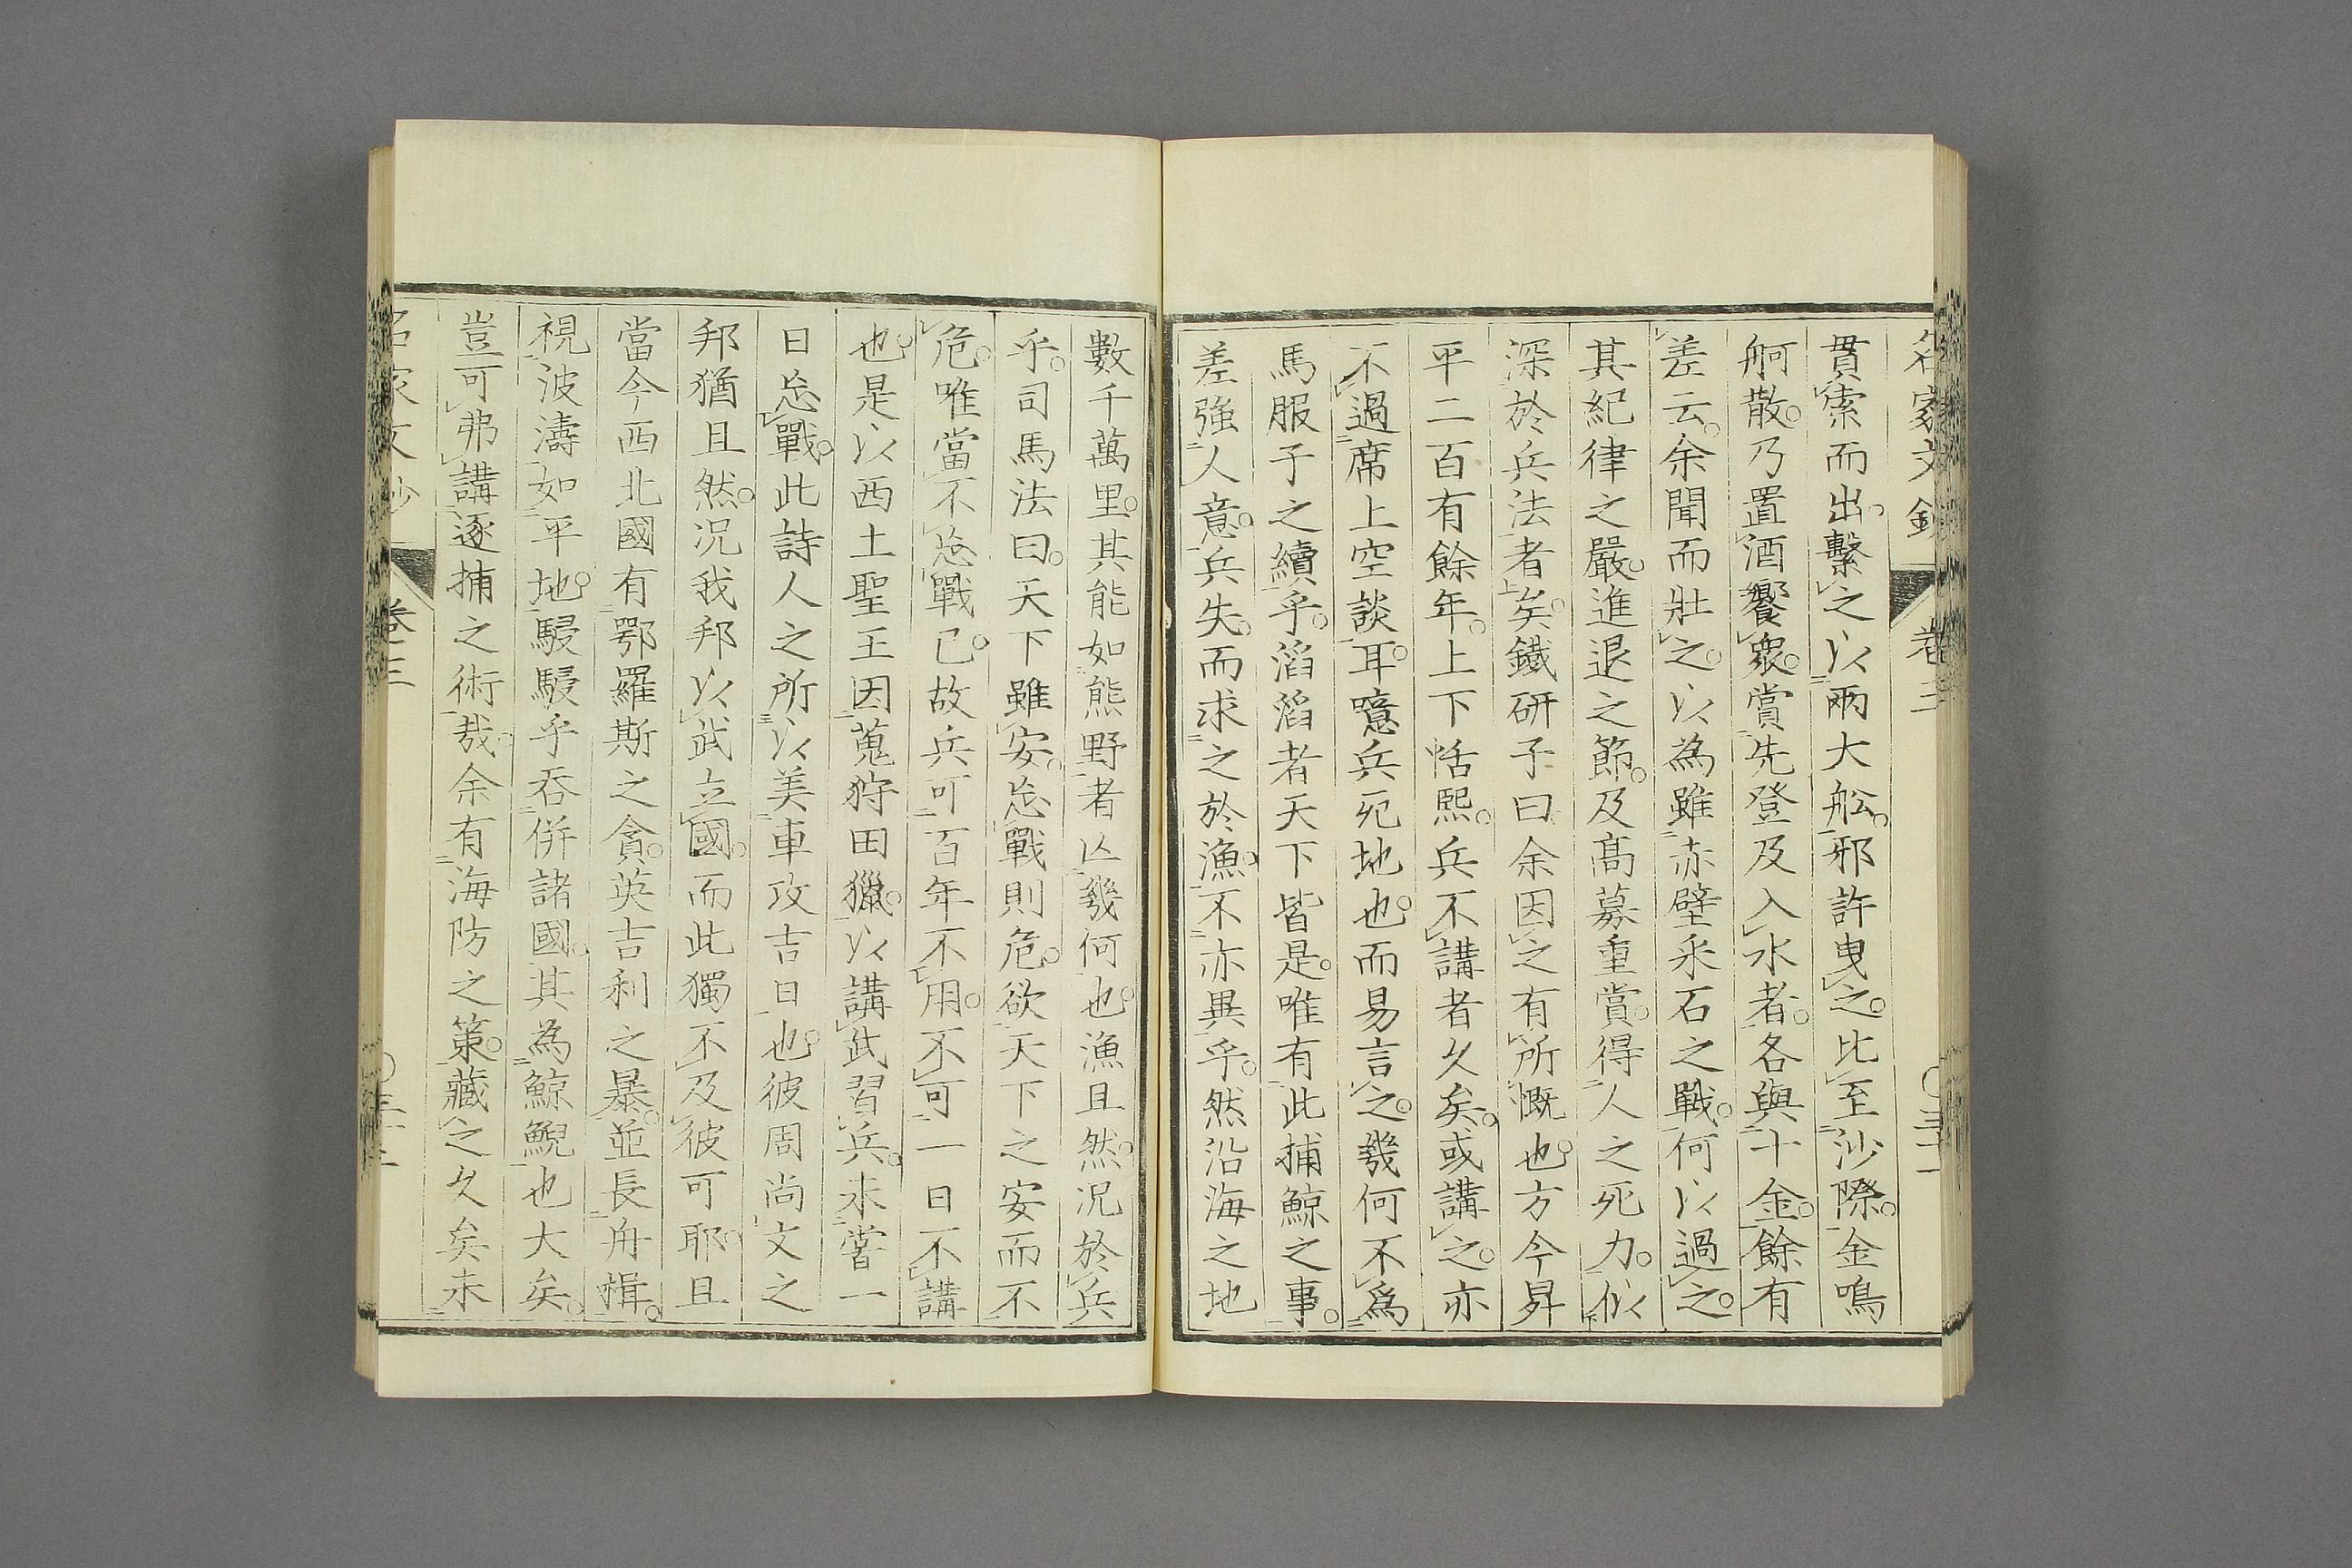 名家文鈔　卷三　〇三十一
貫索而出。繫之以兩大舩。邪許曳之。比至沙際。金鳴
舸散。乃置酒饗衆。賞先登及入水者。各與十金。餘有
差云。余聞而壯之。以為雖赤壁采石之戰。何以過之。
其紀律之嚴。進退之節。及髙募重賞。得人之死力。似
深於兵法者矣。鐵研子曰余因之有所慨也。方今昇
平二百有餘年。上下恬熙。兵不講者久矣。或講之。亦
不過席上空談耳。噫兵死地也。而易言之。幾何不爲
馬服子之續乎。滔滔者天下皆是。唯有此捕鯨之事。
差強人意。兵失。而求之於漁。不亦異乎。然沿海之地
數千萬里。其能如熊野者亾幾何也。漁且然。況於兵
乎。司馬法曰。天下雖安。忘戰則危。欲天下之安而不
危。唯當不忘戰已。故兵可百年不用。不可一日不講
也。是以西土聖王因蒐狩田獵。以講武習兵。未嘗一
日忘戰。此詩人之所以美車攻吉日也。彼周尚文之
邦猶且然。況我邦以武立國。而此獨不及彼可耶。且
當今西北國有鄂羅斯之貪。英吉利之暴。並長舟楫。
視波濤如平地。駸駸乎吞併諸國。其為鯨鯢也大矣。
豈可弗講逐捕之術哉。余有海防之策。藏之久矣未